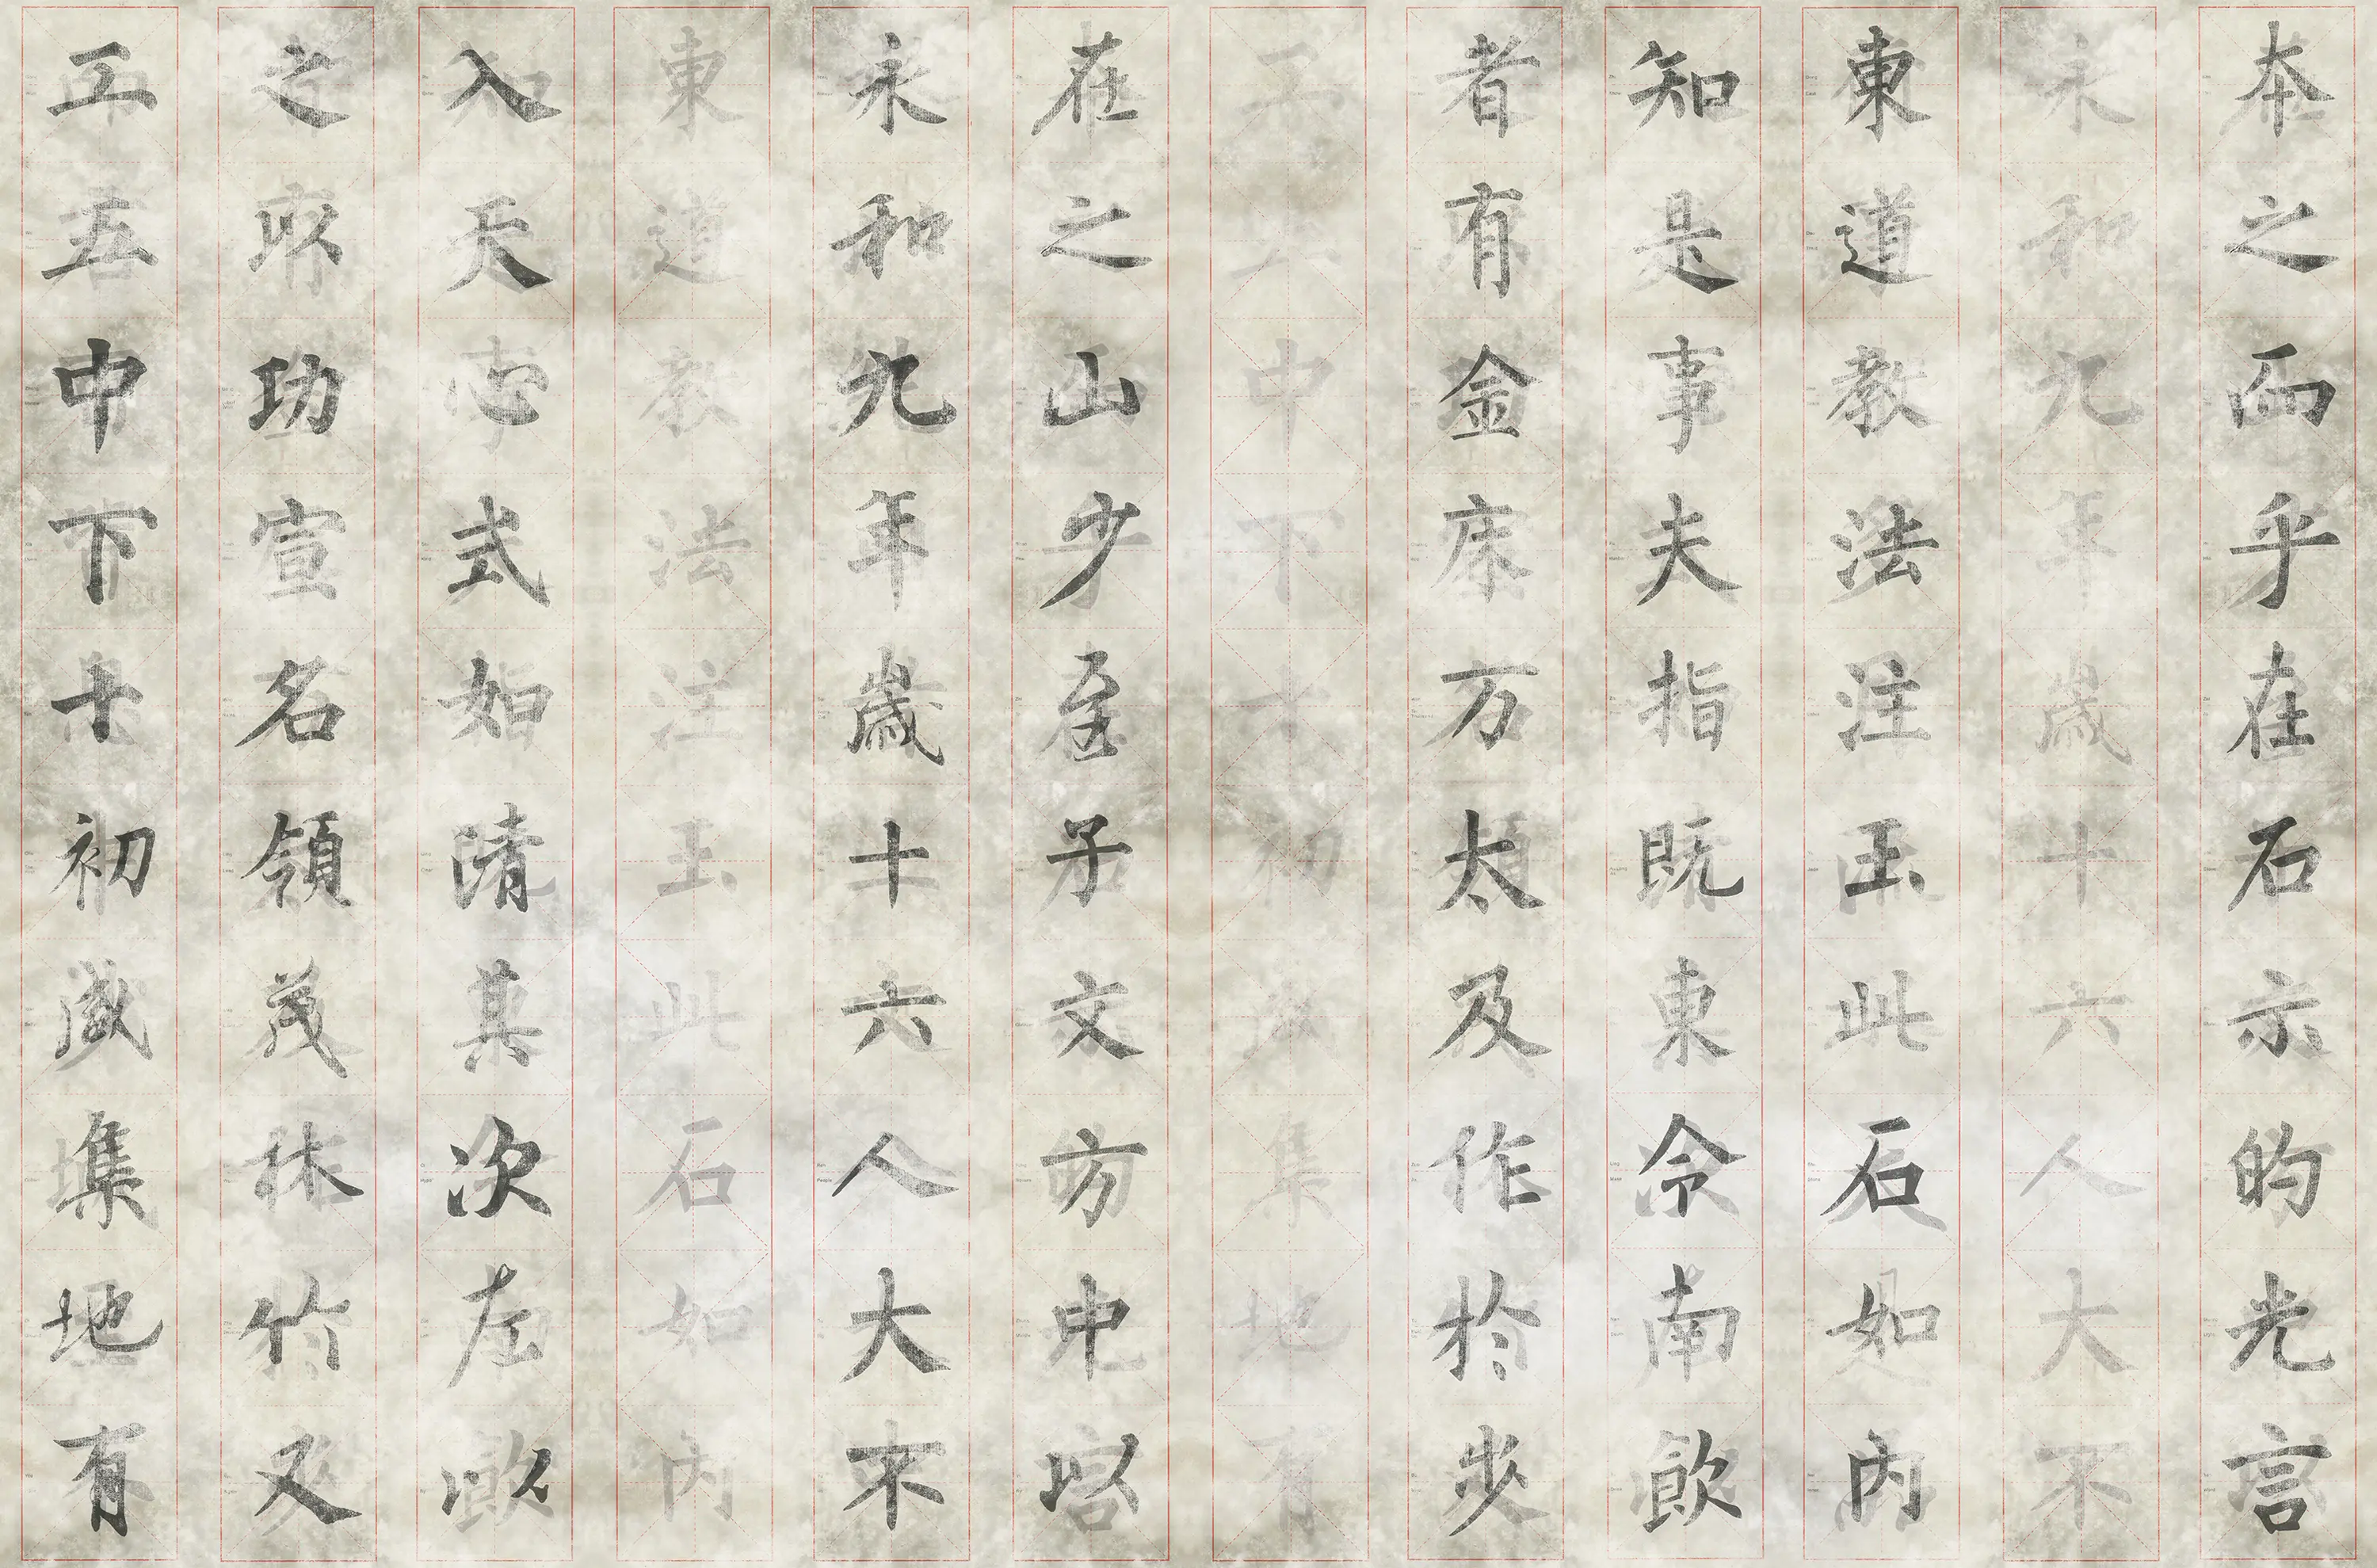 本之而乎在石示昀光言
永和九年歲十六人大不
東道教法注玉此石如內
知是事夫指既東令南飲
者有金床方太及作於
中下十初集地有
在之山少至子文方中以
永和九年歲十六人大不
東道教法注玉此石如內
入天式如清其次左以
之功宣名領茂林竹又
工五中下十初盛集地有